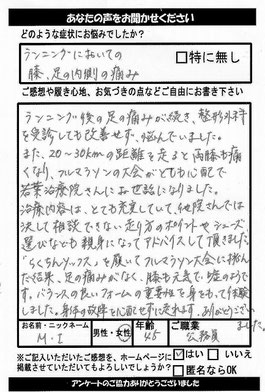 あなたの声をお聞かせください
どのような症状にお悩みでしたか?
ランニングにおいての
膝、足の内側の痛み
□特に無し
ご感想や履き心地、お気づきの点などご自由にお書き下さい
ランニング後の足の痛みが続き、整形外科
を受診しても改善せず、悩んでいました。
また、20〜30kmの距離を走ると両膝も痛
くなり、フルマラソンの大会がとても心配で
若葉治療院さんにお世話になりました。
治療内容は、とても充実していて、他院さんでは
決して相談できない走り方のポイントやシューズ
選びなども親身になってアドバイスして頂きました。
「らくちんソックス」を履いてフルマラソン大会に挑ん
だ結果、足の痛みがなく、膝も元気で嘘のようで
す。バランスの良いフォームの重要性を身をもって体験
しました。身体の故障を心配せずに走れます。ありがとうござい
ました。
お名前・ニックネーム
M.I
男性・女性
年齢
45
ご職業
公務員
※ご記入いただいたご感想を、ホームページに
掲載させていただいてもよろしいでしょうか?
☑はい □いいえ
□匿名ならOK
アンケートのご協力ありがとうございました